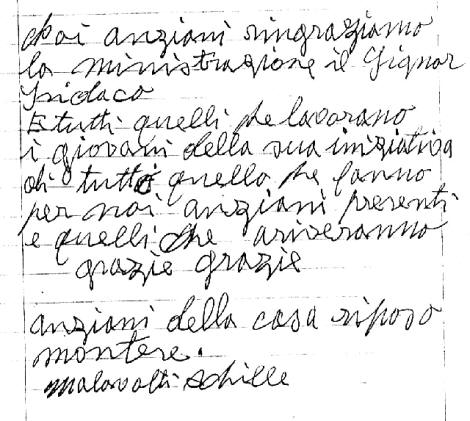 Noi anziani ringraziamo
la ministrazione il Signor
Sidaco
E tutti quelli che lavorano
i giovani della sua iniziativa
di tutto quello che fanno
per noi anziani presenti
e quelli che ariveranno
grazie grazie
anziani della casa riposo
montere.
malavolti achille